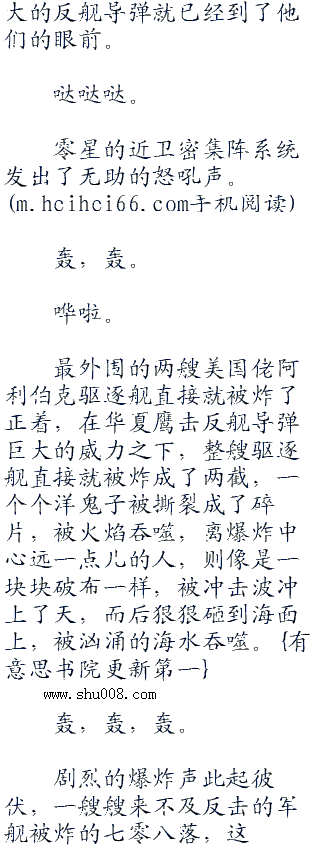 大的反舰导弹就已经到了他
们的眼前。
哒哒哒。
零星的近卫密集阵系统
发出了无助的怒吼声。
(m.hcihci66.com手机阅读)
轰，轰。
哗啦。
最外围的两艘美国佬阿
利伯克驱逐舰直接就被炸了
正着，在华夏鹰击反舰导弹
巨大的威力之下，整艘驱逐
舰直接就被炸成了两截，一
个个洋鬼子被撕裂成了碎
片，被火焰吞噬，离爆炸中
心远一点儿的人，则像是一
块块破布一样，被冲击波冲
上了天，而后狠狠砸到海面
上，被汹涌的海水吞噬。{有
意思书院更新第一}
www.shu008.com
轰，轰，轰。
剧烈的爆炸声此起彼
伏，一艘艘来不及反击的军
舰被炸的七零八落，这